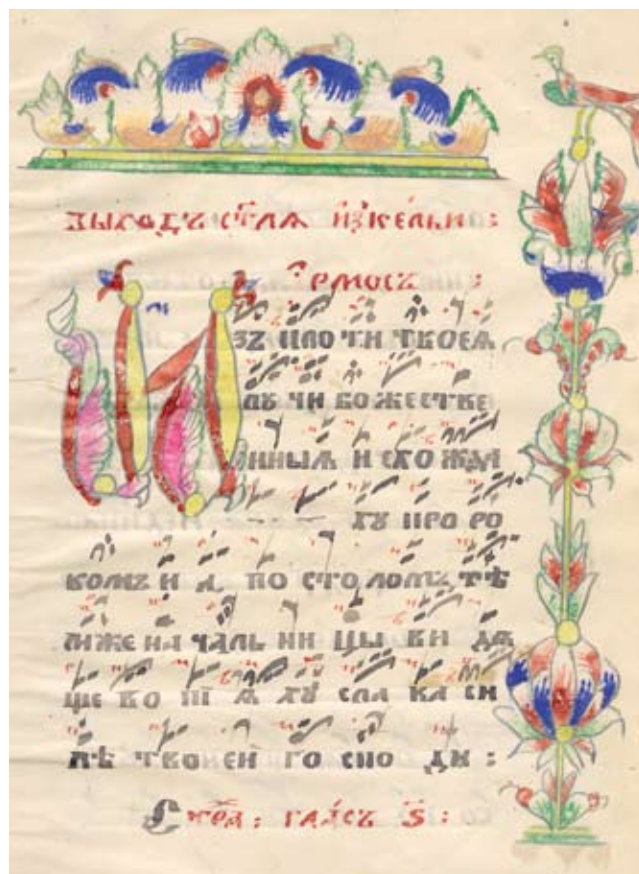 ВЫХОДЪ СТ҃ЛѦ И҆З КЕ́ЛЬИ :
РМОСЪ :
И ЗЪ ПЛО ТИ ТВОЕѦ
ЛꙊ ЧИ БОЖЕСТВЕ
ННЫѦ И СХО ЖДА
ХꙊ ПРО РО
КОМЪ И А ПО СТОЛОМЪ ТѢ
МЖЕ НА ЧАЛЬ НИ ЦЫ ВИ ДѦ
ЩЕ ВО ПІ Ѧ ХꙊ СЛА ВА СИ
ЛѢ ТВОЕЙ ГО СПО ДИ :
: ГЛА́СЪ Ѕ҃ :